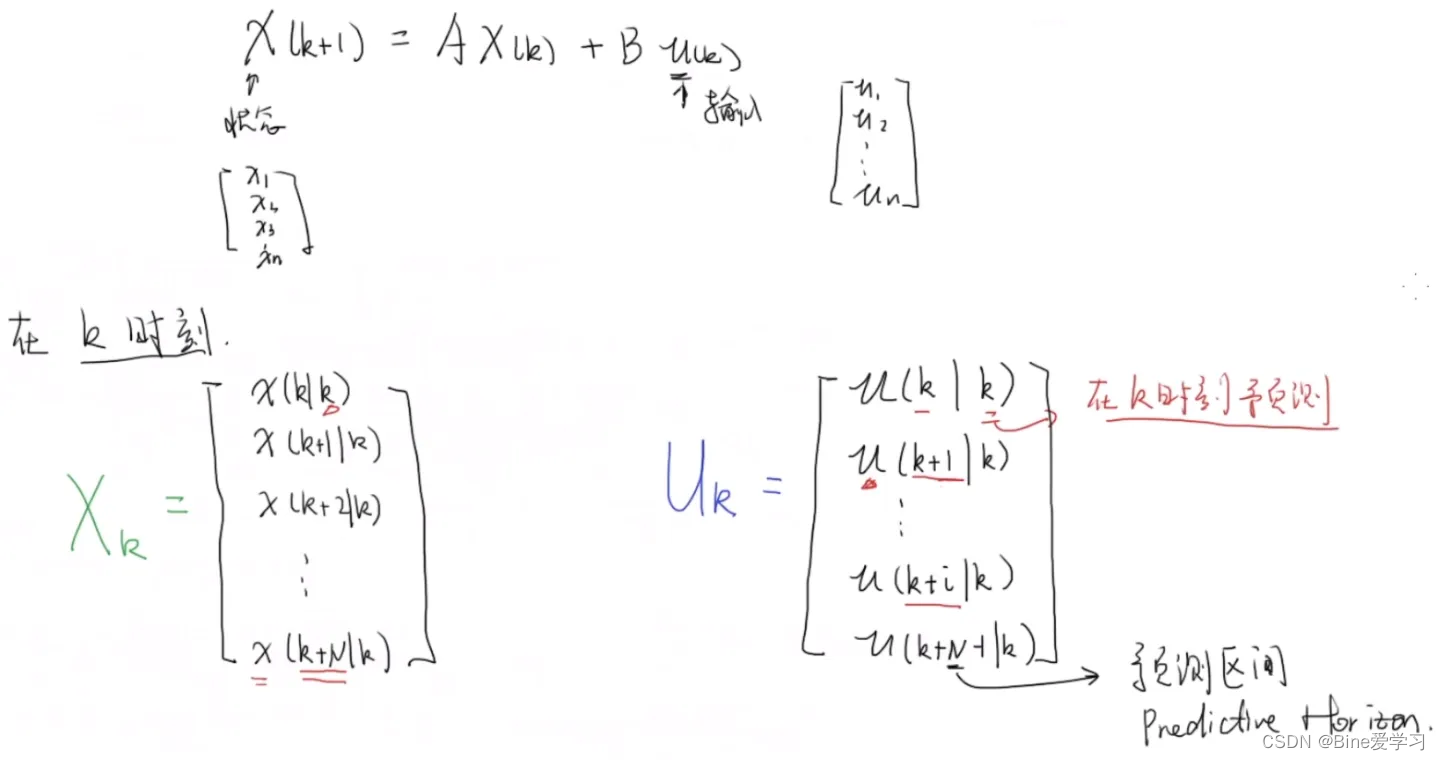 X(k+1) = A X(k) + B u(k)
↑ 状态
↑ 输入
[x₁
x₂
x₃
⋮
xn]
[u₁
u₂
⋮
un]
在 k 时刻.
Xk = [x(k|k)
x(k+1|k)
x(k+2|k)
⋮
x(k+N|k)]
Uk = [u(k|k)
u(k+1|k)
⋮
u(k+i|k)
u(k+N-1|k)]
→ 在k时刻预测
→ 预测区间
Predictive Horizon.
CSDN @Bine爱学习